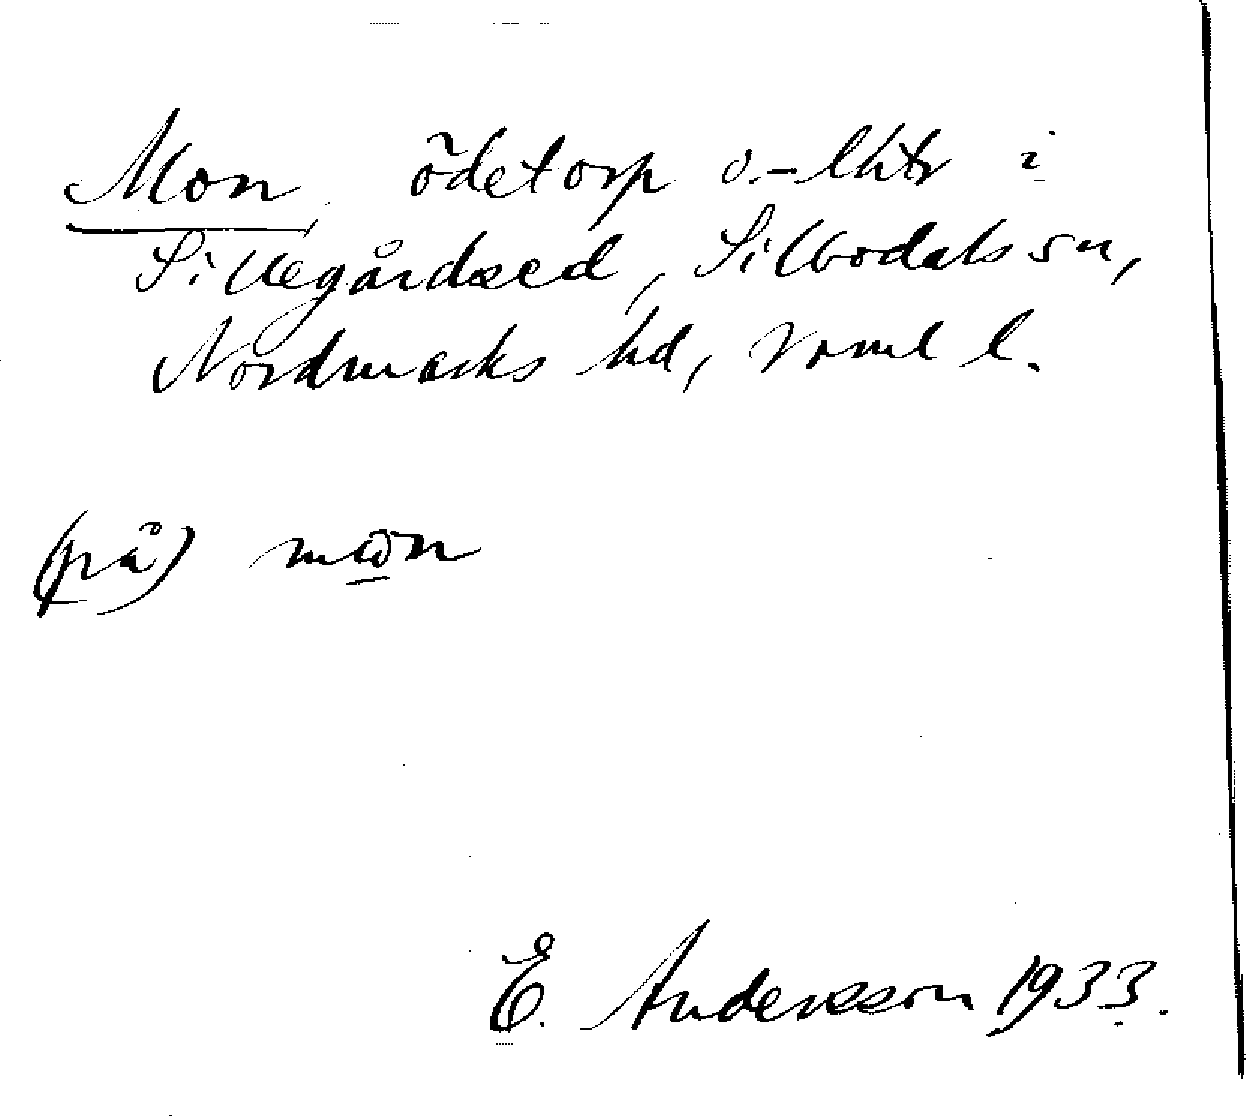 Mon, ödetorp o.
Sillegårdsed, Silbodals sn,
Nordmarks hd, Vrml l.
(på) mωn
E. Andersson 1933.